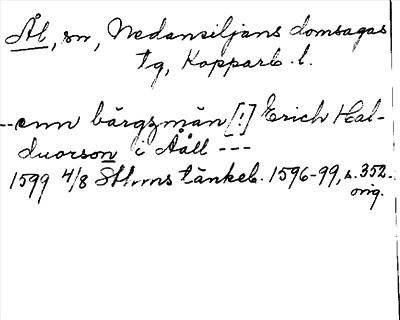 Ål, sn, Nedansiljans domsagas
tg, Kopparb. l.
--enn bärgzmän [!] Erich Hal-
duorson i Ååll ---
1599 4/8 Sthms tänkeb. 1596-99, s. 352.
orig.